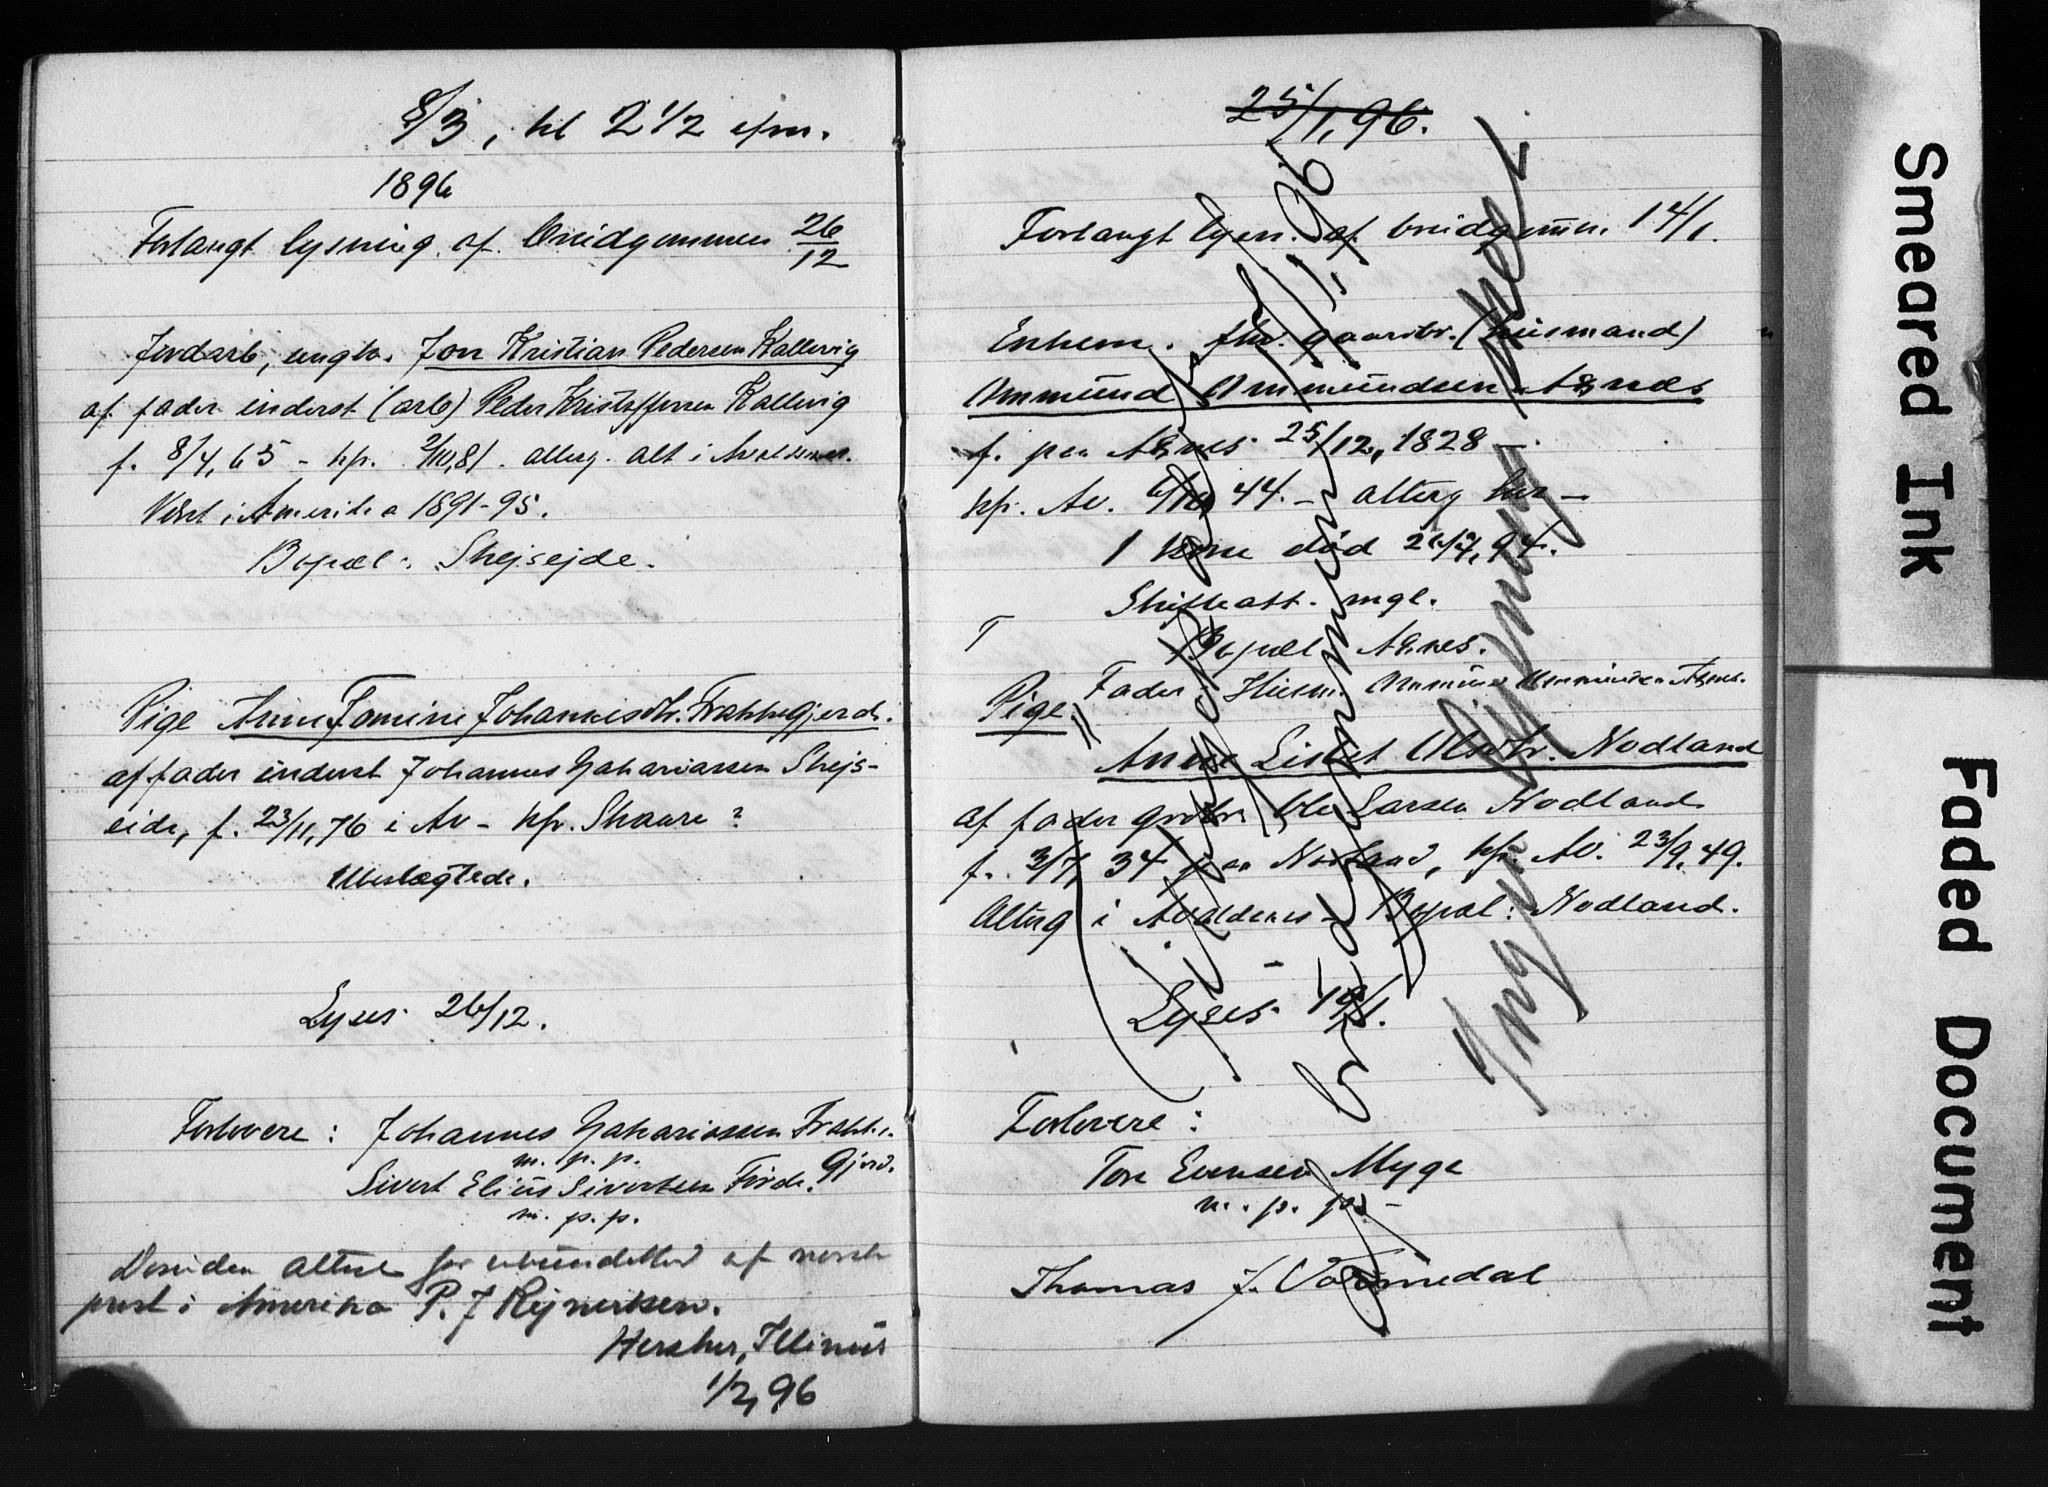 8/3, kl 2 1/2 efm.
1896
Forlangt lysning af brudgommen 26/12
Jordarb, ungk. Jon Kristian Pedersen Kallevig
af fader inderst (arb) Peder Kristoffersen Kallevig
f. 8/4, 65 - kp. 2/10, 81. alterg. alt i Avaldsnes.
Vært i Amerika 1891-95.
Bopæl: Skejsejde.
Pige Anne Tomine Johannesdtr. Frakkagjerd.
af fader inderst Johannes Zakariassen Skejs-
eide, f. 23/11, 76 i Av - kfr. Skaare ?
Ubeslægtede.
Lyses 26/12.
Forlovere: Johannes Zakariassen Frakka-
gjerd.
m. p. p.
Sivert Elius Sivertsen Førde.
m. p. p.
Desuden attest for ubundethed af norsk
prest i Amerika P. J Rejnertsen.
Hersher, Illinois
1/2, 96
25/1, 96.
Forlangt lysn. af brudgomm. 14/1.
Enkem. fhv. gaardbr. (husmand)
Ommund Ommundsen Agnes
f. paa Agnes 25/12, 1828 -.
kp. Av. 6/10 44. - alterg her -
1 kone død 26/7, 94.
Skifteatt. mgl.
T
Bopæl Agnes.
Fader: Husm. Ommund Ommundsen Agnes.
Pige
Anne Lisbet Olsdtr. Nodland
af fader grdbr. Ole Larsen Nodland
f. 3/7, 34 paa Nodland, kfr. Av. 23/9, 49.
Alterg i Avaldsnes - Bopæl: Nodland.
Lyses 19/1.
Forlovere:
Tore Evensen Myge
m. p. p. -
Thomas J. Vormedal
17/1, 96
brudgommen
Ingen
Smeared Ink
Faded Document